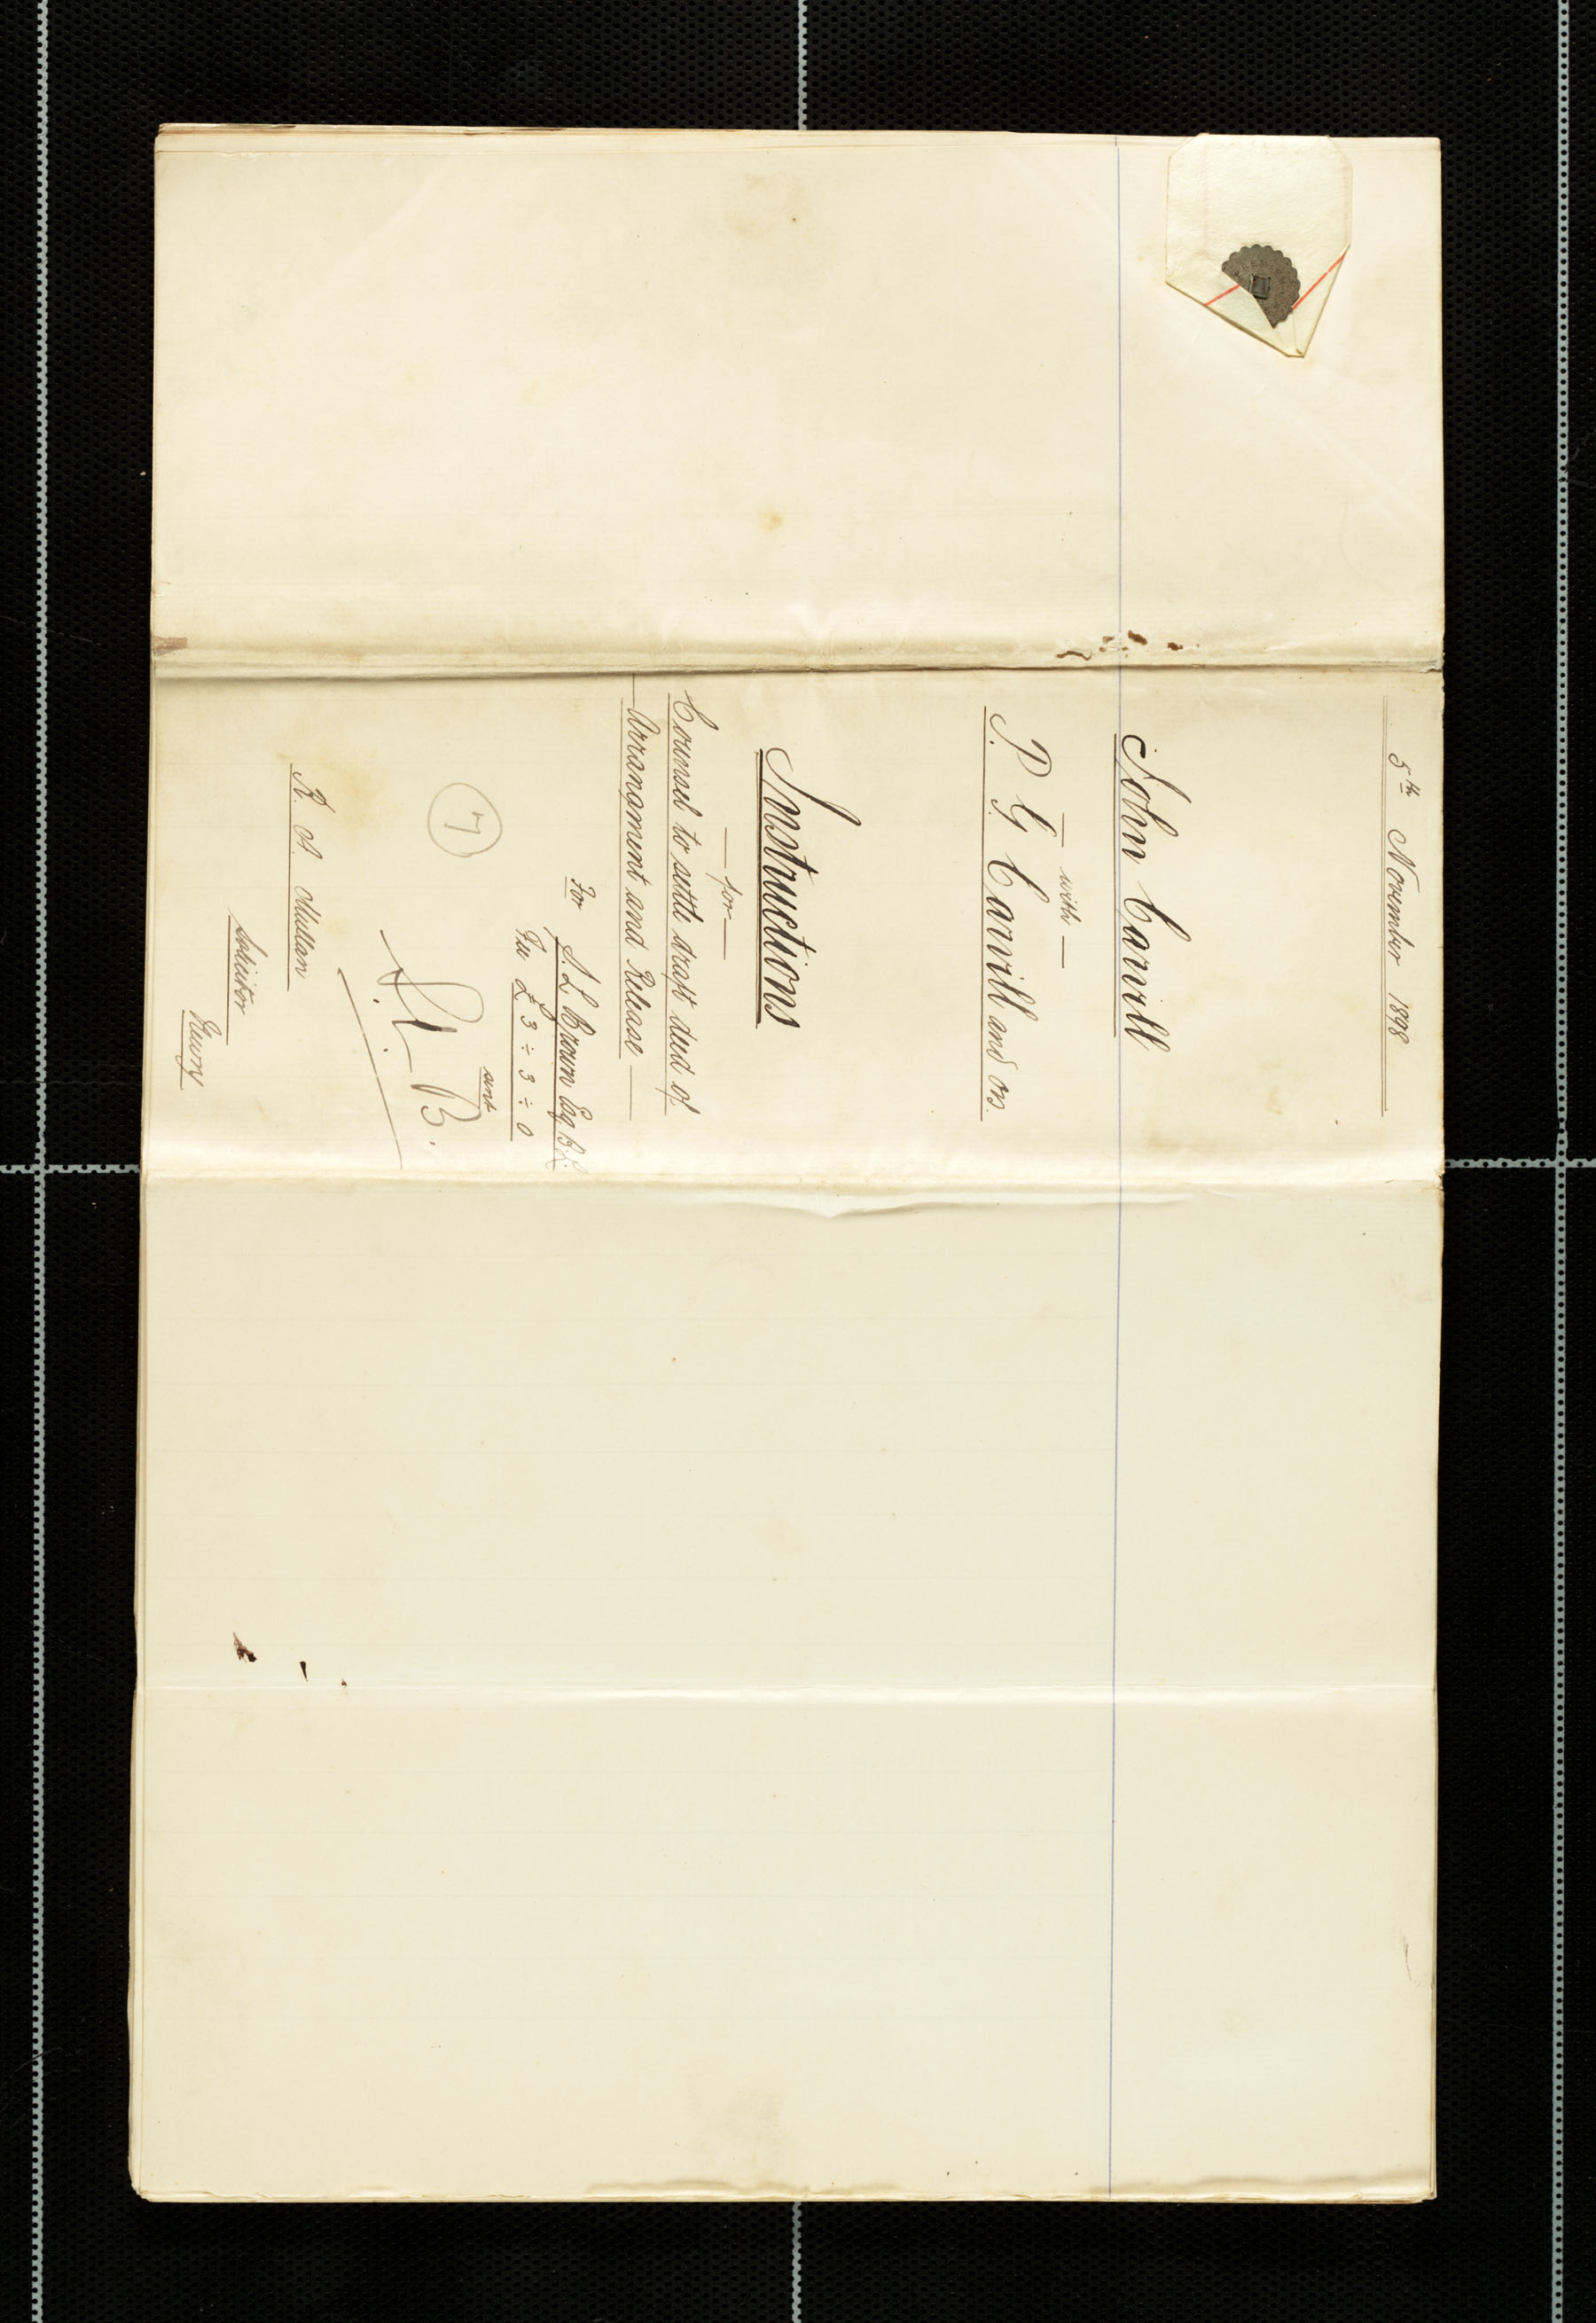 5th November 1898
John Carvill
— with —
P. G. Carvill and ors.
Instructions
— for —
Counsel to settle draft deed of
Arrangment and Release —
For S. L. Brown Esq B.L.
Fee £3 ÷ 3 ÷ 0
sent
7
B.
R. A. Mullan
Solicitor
Newry